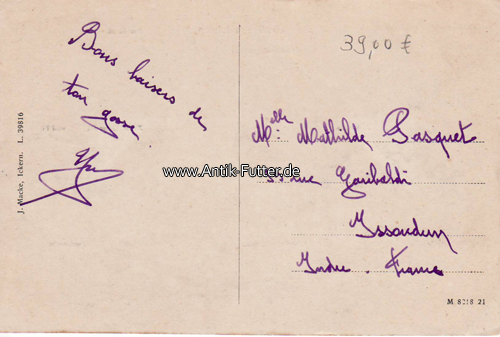 39,00 €
Bons baisers de
ton gosse
Mlle Mathilde Pasquet
rue Garibaldi
Issoudun
Indre . France
www.Antik-Futter.de
J. Macke, Ickern. L. 39816
M 8218 21